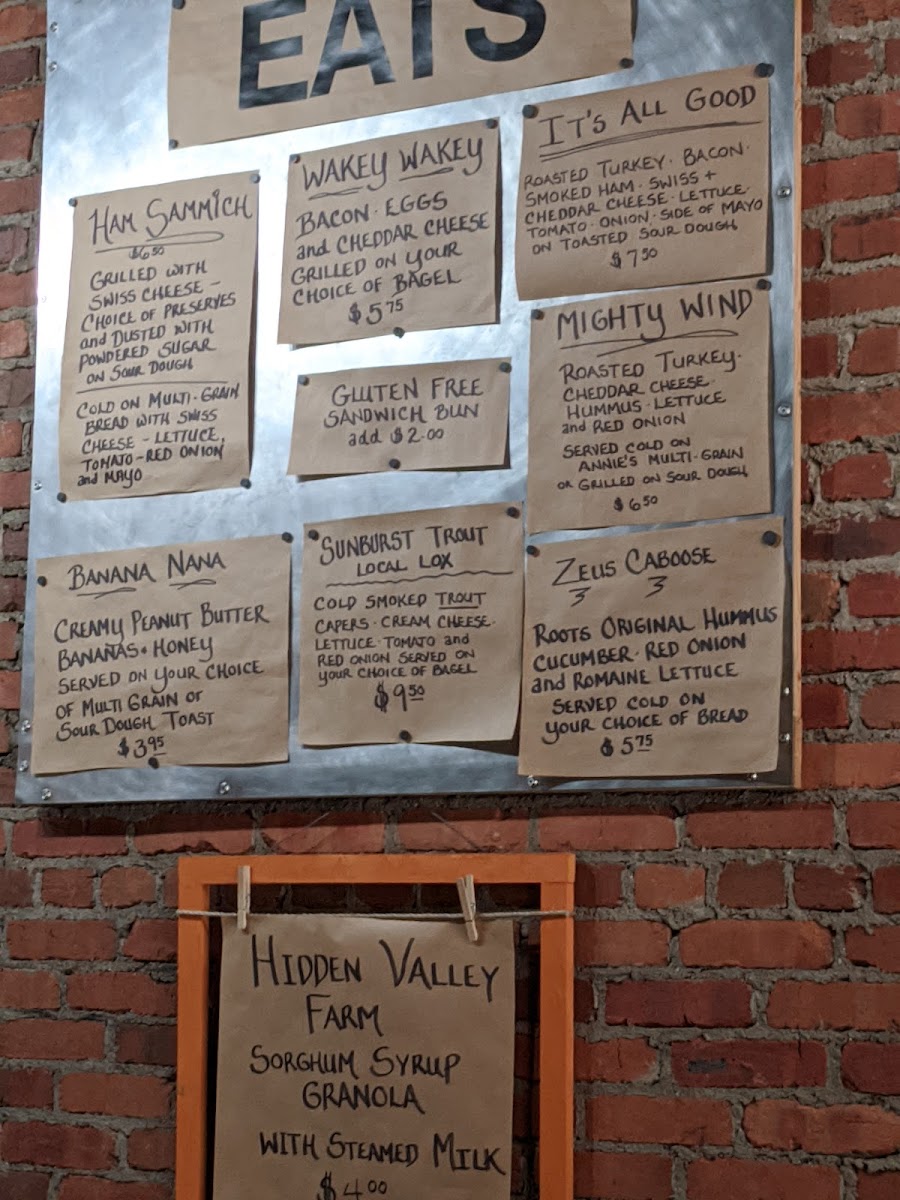 EATS
HAM SAMMICH
$6.50
GRILLED WITH
SWISS CHEESE -
CHOICE OF PRESERVES
and DUSTED WITH
POWDERED SUGAR
ON SOUR DOUGH
COLD ON MULTI-GRAIN
BREAD WITH SWISS
CHEESE - LETTUCE,
TOMATO - RED ONION
and MAYO
WAKEY WAKEY
BACON · EGGS
and CHEDDAR CHEESE
GRILLED ON YOUR
CHOICE OF BAGEL
$5.75
IT'S ALL GOOD
ROASTED TURKEY · BACON ·
SMOKED HAM · SWISS +
CHEDDAR CHEESE · LETTUCE ·
TOMATO · ONION · SIDE OF MAYO
ON TOASTED SOUR DOUGH
$7.50
GLUTEN FREE
SANDWICH BUN
add $2.00
MIGHTY WIND
ROASTED TURKEY ·
CHEDDAR CHEESE ·
HUMMUS · LETTUCE
and RED ONION
SERVED COLD ON
ANNIE'S MULTI-GRAIN
OR GRILLED ON SOUR DOUGH
$6.50
BANANA NANA
CREAMY PEANUT BUTTER
BANANAS · HONEY
SERVED ON YOUR CHOICE
OF MULTI GRAIN OR
SOUR DOUGH TOAST
$3.95
SUNBURST TROUT
LOCAL LOX
COLD SMOKED TROUT
CAPERS · CREAM CHEESE ·
LETTUCE · TOMATO and
RED ONION SERVED ON
YOUR CHOICE OF BAGEL
$9.50
ZEUS CABOOSE
ROOTS ORIGINAL HUMMUS
CUCUMBER · RED ONION
and ROMAINE LETTUCE
SERVED COLD ON
YOUR CHOICE OF BREAD
$5.75
HIDDEN VALLEY
FARM
SORGHUM SYRUP
GRANOLA
WITH STEAMED MILK
$4.00